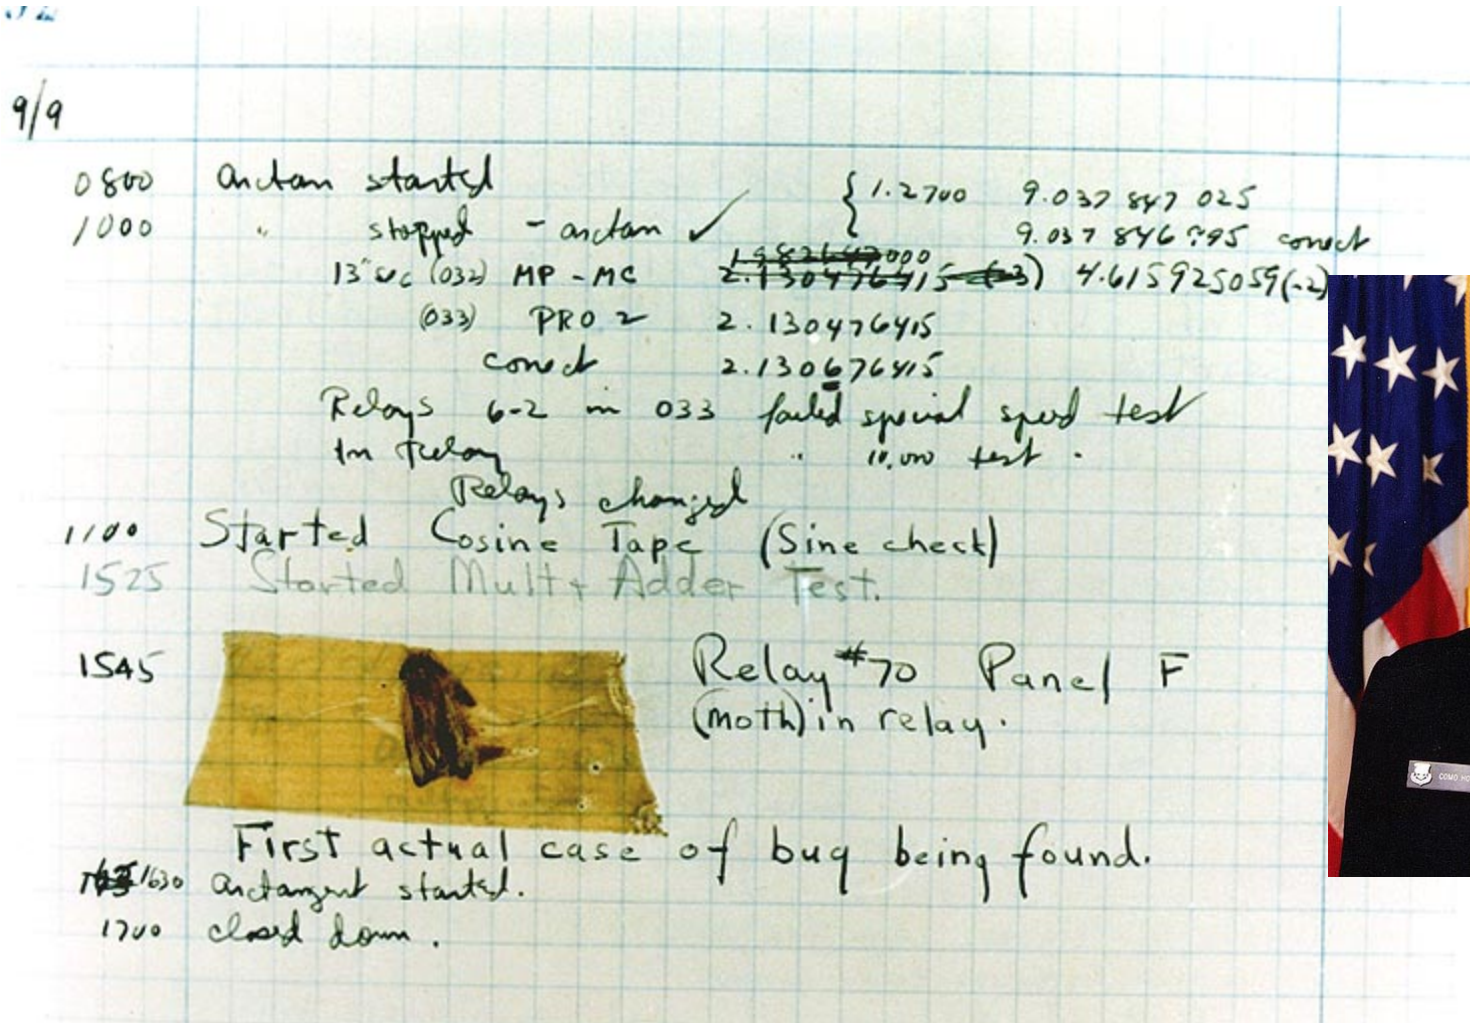 9/9
0800 arctan started { 1.2700 9.037 847 025
1000 " stopped - arctan ✓ 9.037 846 995 correct
13" sec (032) MP - MC 1.982647000 2.130476415 (-3) 4.615925059(-2)
(033) PRO 2 2.130476415
correct 2.130676415
Relays 6-2 in 033 failed special speed test
In Relay " 10,000 test .
Relays changed
1100 Started Cosine Tape (Sine check)
1525 Started Mult + Adder Test.
1545 Relay #70 Panel F
(moth) in relay.
First actual case of bug being found.
1630 arctangent started.
1700 closed down .
COMO HO